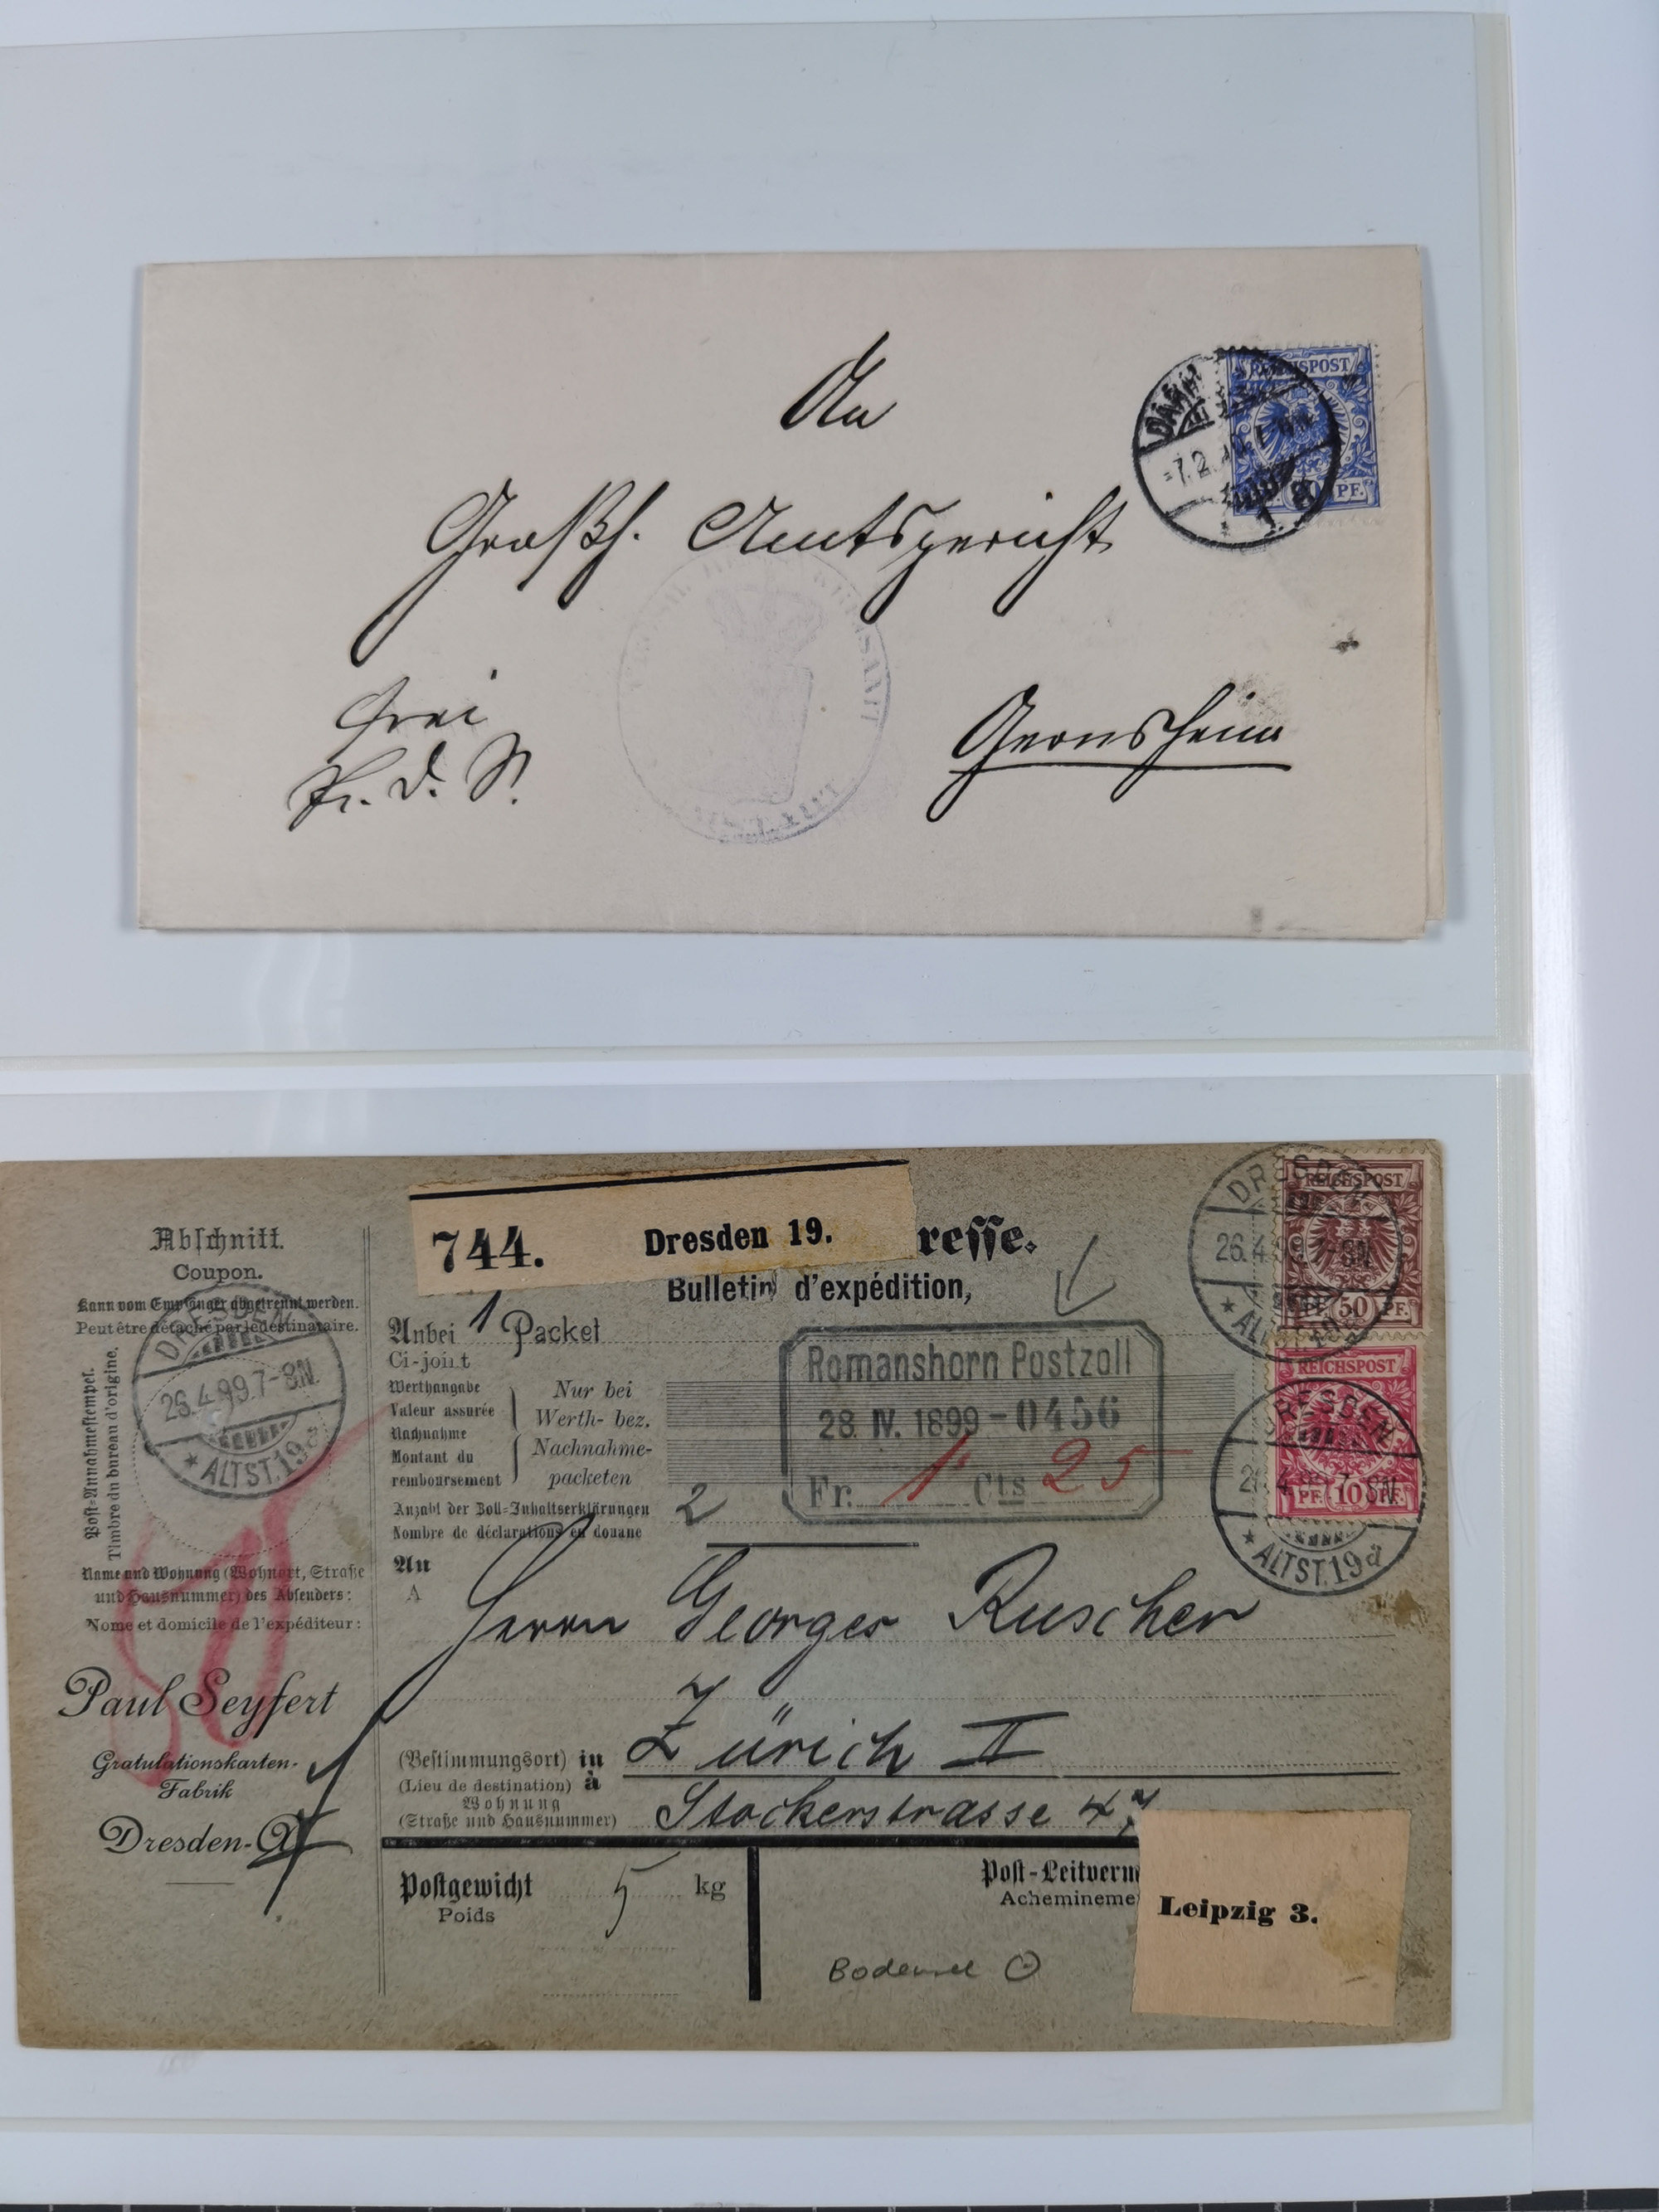 An
Großh. Amtsgericht
frei
Gernsheim
REICHSPOST
PF.
744. Dresden 19.
resse.
Bulletin d'expédition,
Abschnitt.
Coupon.
Kann vom Empfänger abgetrennt werden.
Peut être détaché par le destinataire.
Post-Annahmestempel.
Timbre du bureau d'origine.
DRESDEN
26.4.99.7-8N.
* ALTST.19d
Name und Wohnung (Wohnort, Straße
und Hausnummer) des Absenders:
Nome et domicile de l'expéditeur:
Paul Seyfert
Gratulationskarten-
Fabrik
Dresden-A
Anbei 1 Packet
Ci-joint
Werthangabe
Valeur assurée
Nachnahme
Montant du
remboursement
Nur bei
Werth- bez.
Nachnahme-
packeten
Anzahl der Zoll-Inhaltserklärungen
Nombre de déclarations en douane
2
Romanshorn Postzoll
28. IV. 1899-0456
Fr. 1 Cts 25
REICHSPOST
PF. 50 PF.
REICHSPOST
PF. 10 PF.
DRESDEN
* ALTST.19d
An
A
Herrn Georges Ruscher
(Bestimmungsort) in
(Lieu de destination) à
Zürich II
Wohnung
(Straße und Hausnummer)
Stockerstrasse 47
Postgewicht 5 kg
Poids
Post-Leitverm
Achemineme
Leipzig 3.
Bodensee